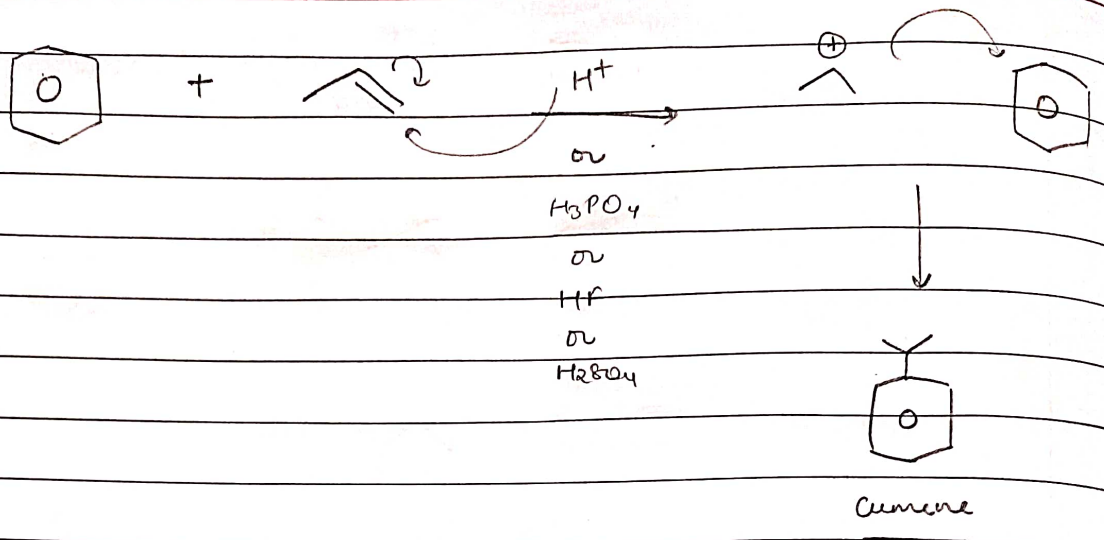 + H⁺ ⊕
or
H₃PO₄
or
HF
or
H₂SO₄
Cumene